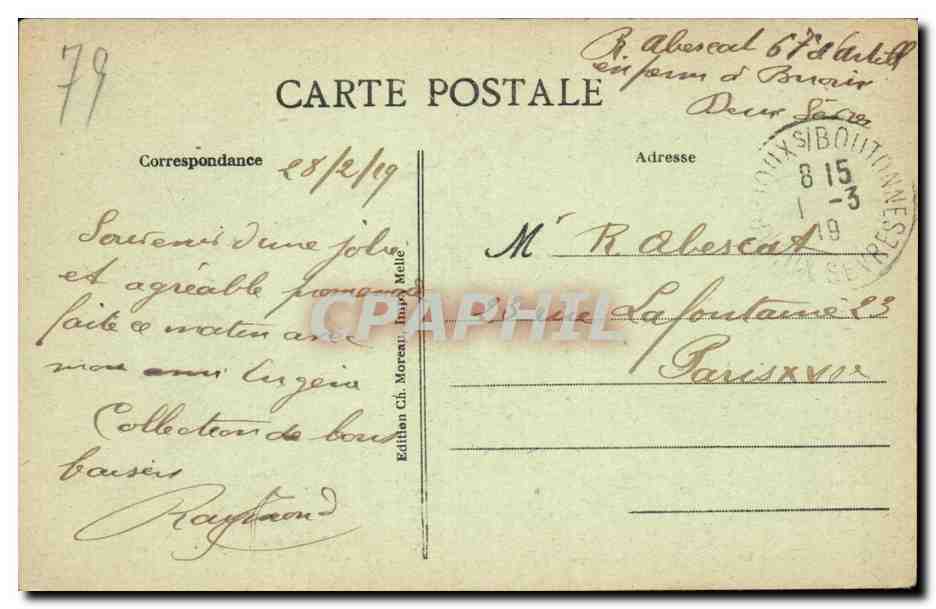 79
R. Abescat 67e d'artill
en perm à
Deux Sèvres
CARTE POSTALE
Correspondance
28/2/19
Adresse
S/BOUTONNE
8 15
1 -3
19
SEVRES
Souvenir d'une jolie
et agréable promenade
faite ce matin avec
mon ami Eugène
Collection de bons
baisers
Raymond
Edition Ch. Moreau, Impr. Melle
Mr R. Abescat
23 rue Lafontaine 23
Paris XVIe
CPAPHIL